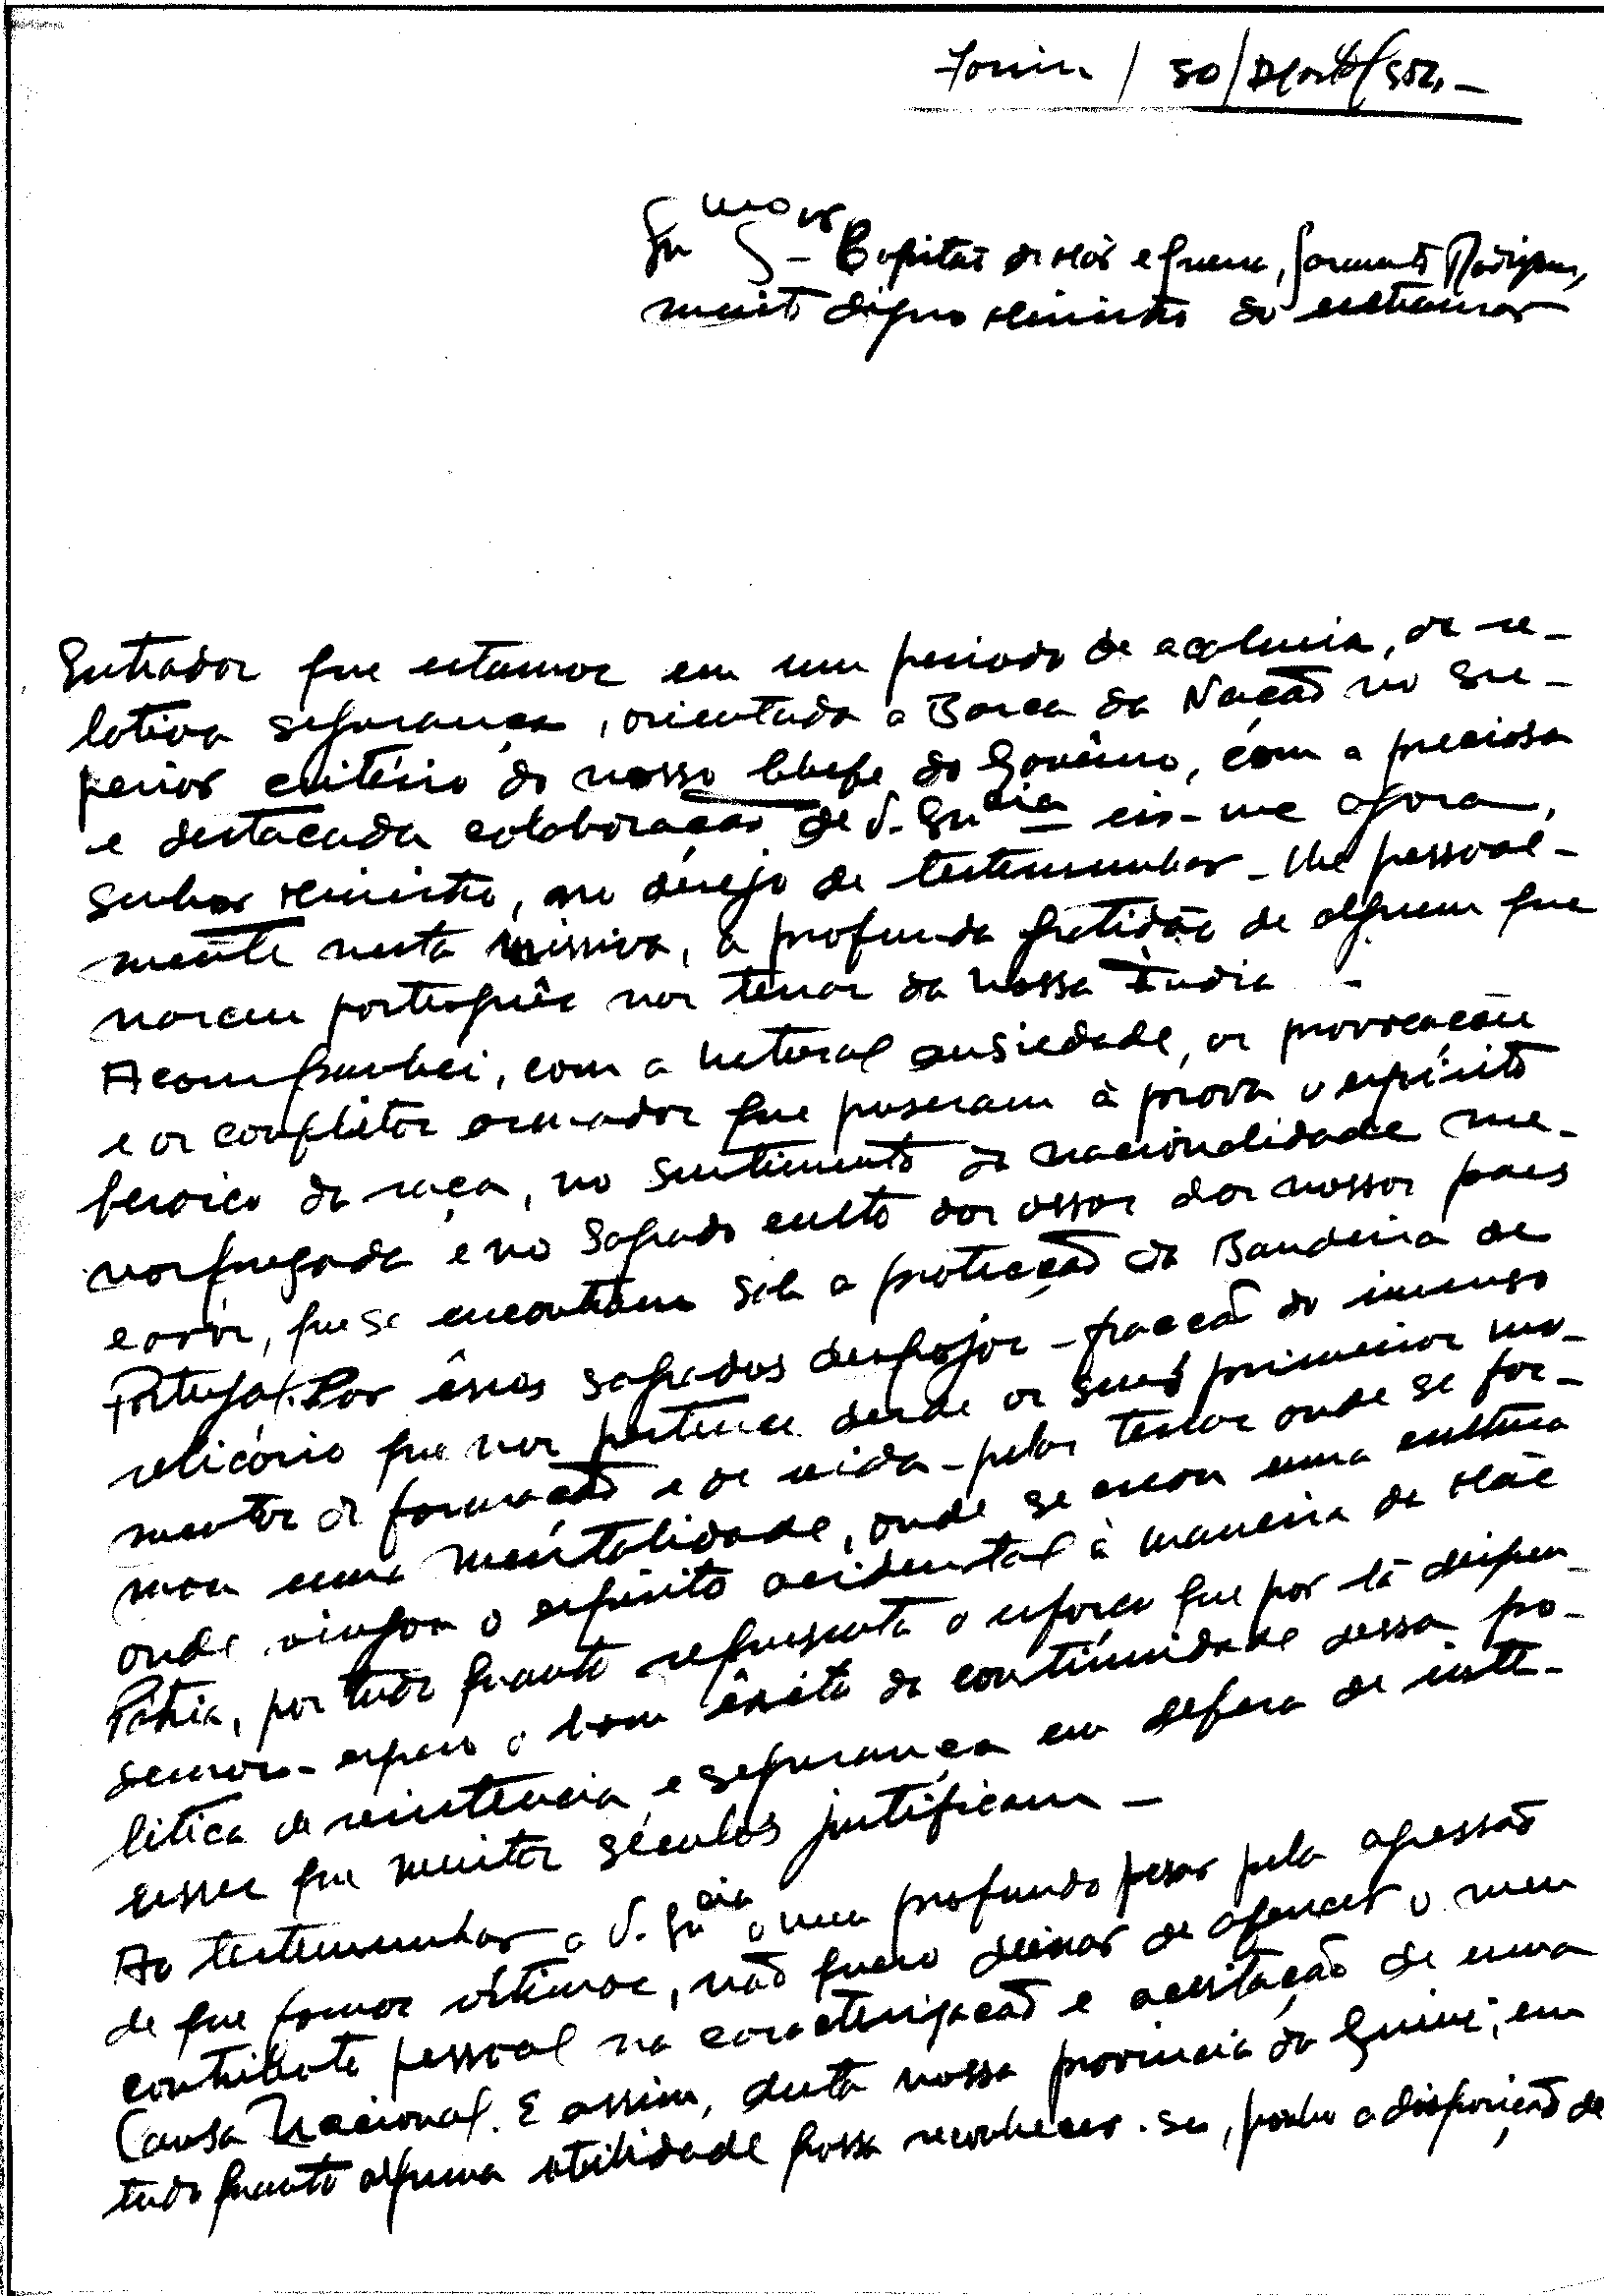 Farim / 30/Agosto/952,-
Exmo Snr Capitão de Mar e Guerra, Sarmento Rodrigues,
muito digno Ministro do Ultramar
Entrados que estamos em um periodo de acalmia, de re-
lativa segurança, orientada a Barca da Nação no su-
perior critério do nosso Chefe do Govêrno, com a preciosa
e destacada colaboração de V. Excia eis-me agora,
Senhor Ministro, no desejo de testemunhar-lhe pessoal-
mente nesta missiva, a profunda gratidão de alguem que
nasceu português nas terras da nossa Índia -
Acompanhei, com a natural ansiedade, as provocações
e os conflitos armados que puseram à prova o espírito
heroico da raça, no sentimento da nacionalidade
e no sagrado culto dos ossos dos nossos paes
e avós, que se encontram sob a protecção da Bandeira de
Portugal. Por êsses sagrados despojos - fracção do imenso
relicário que nos pertence desde os seus primeiros mo-
mentos de formação e de vida - pelas terras onde se for-
mou uma mentalidade, onde se creou uma cultura
onde vingou o espírito ocidental à maneira da Mãe
Pátria, por tudo quanto representa o esforço que por lá dispen-
semos - espero o bom êxito da continuidade dessa po-
litica de resistencia e segurança em defesa de inte-
resses que muitos séculos justificam -
Ao testemunhar a V. Excia o meu profundo pesar pela agressão
de que fomos vítimas, não quero deixar de oferecer o meu
contributo pessoal na caracterização e aceitação de uma
Causa Nacional. E assim, desta nossa provincia da Guiné, em
tudo quanto alguma utilidade possa reconhecer-se, ponho a disposição de